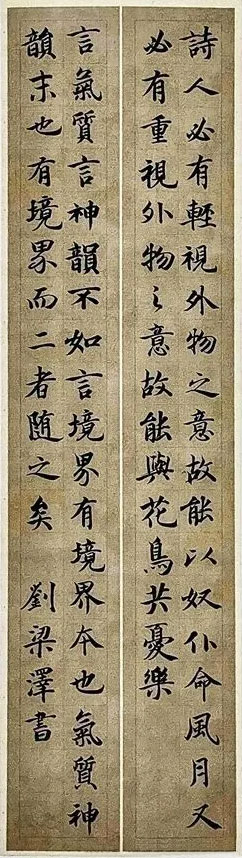 詩人必有輕視外物之意故能以奴仆命風月又
必有重視外物之意故能與花鳥共憂樂
言氣質言神韻不如言境界有境界本也氣質神
韻末也有境界而二者随之矣 劉梁澤書